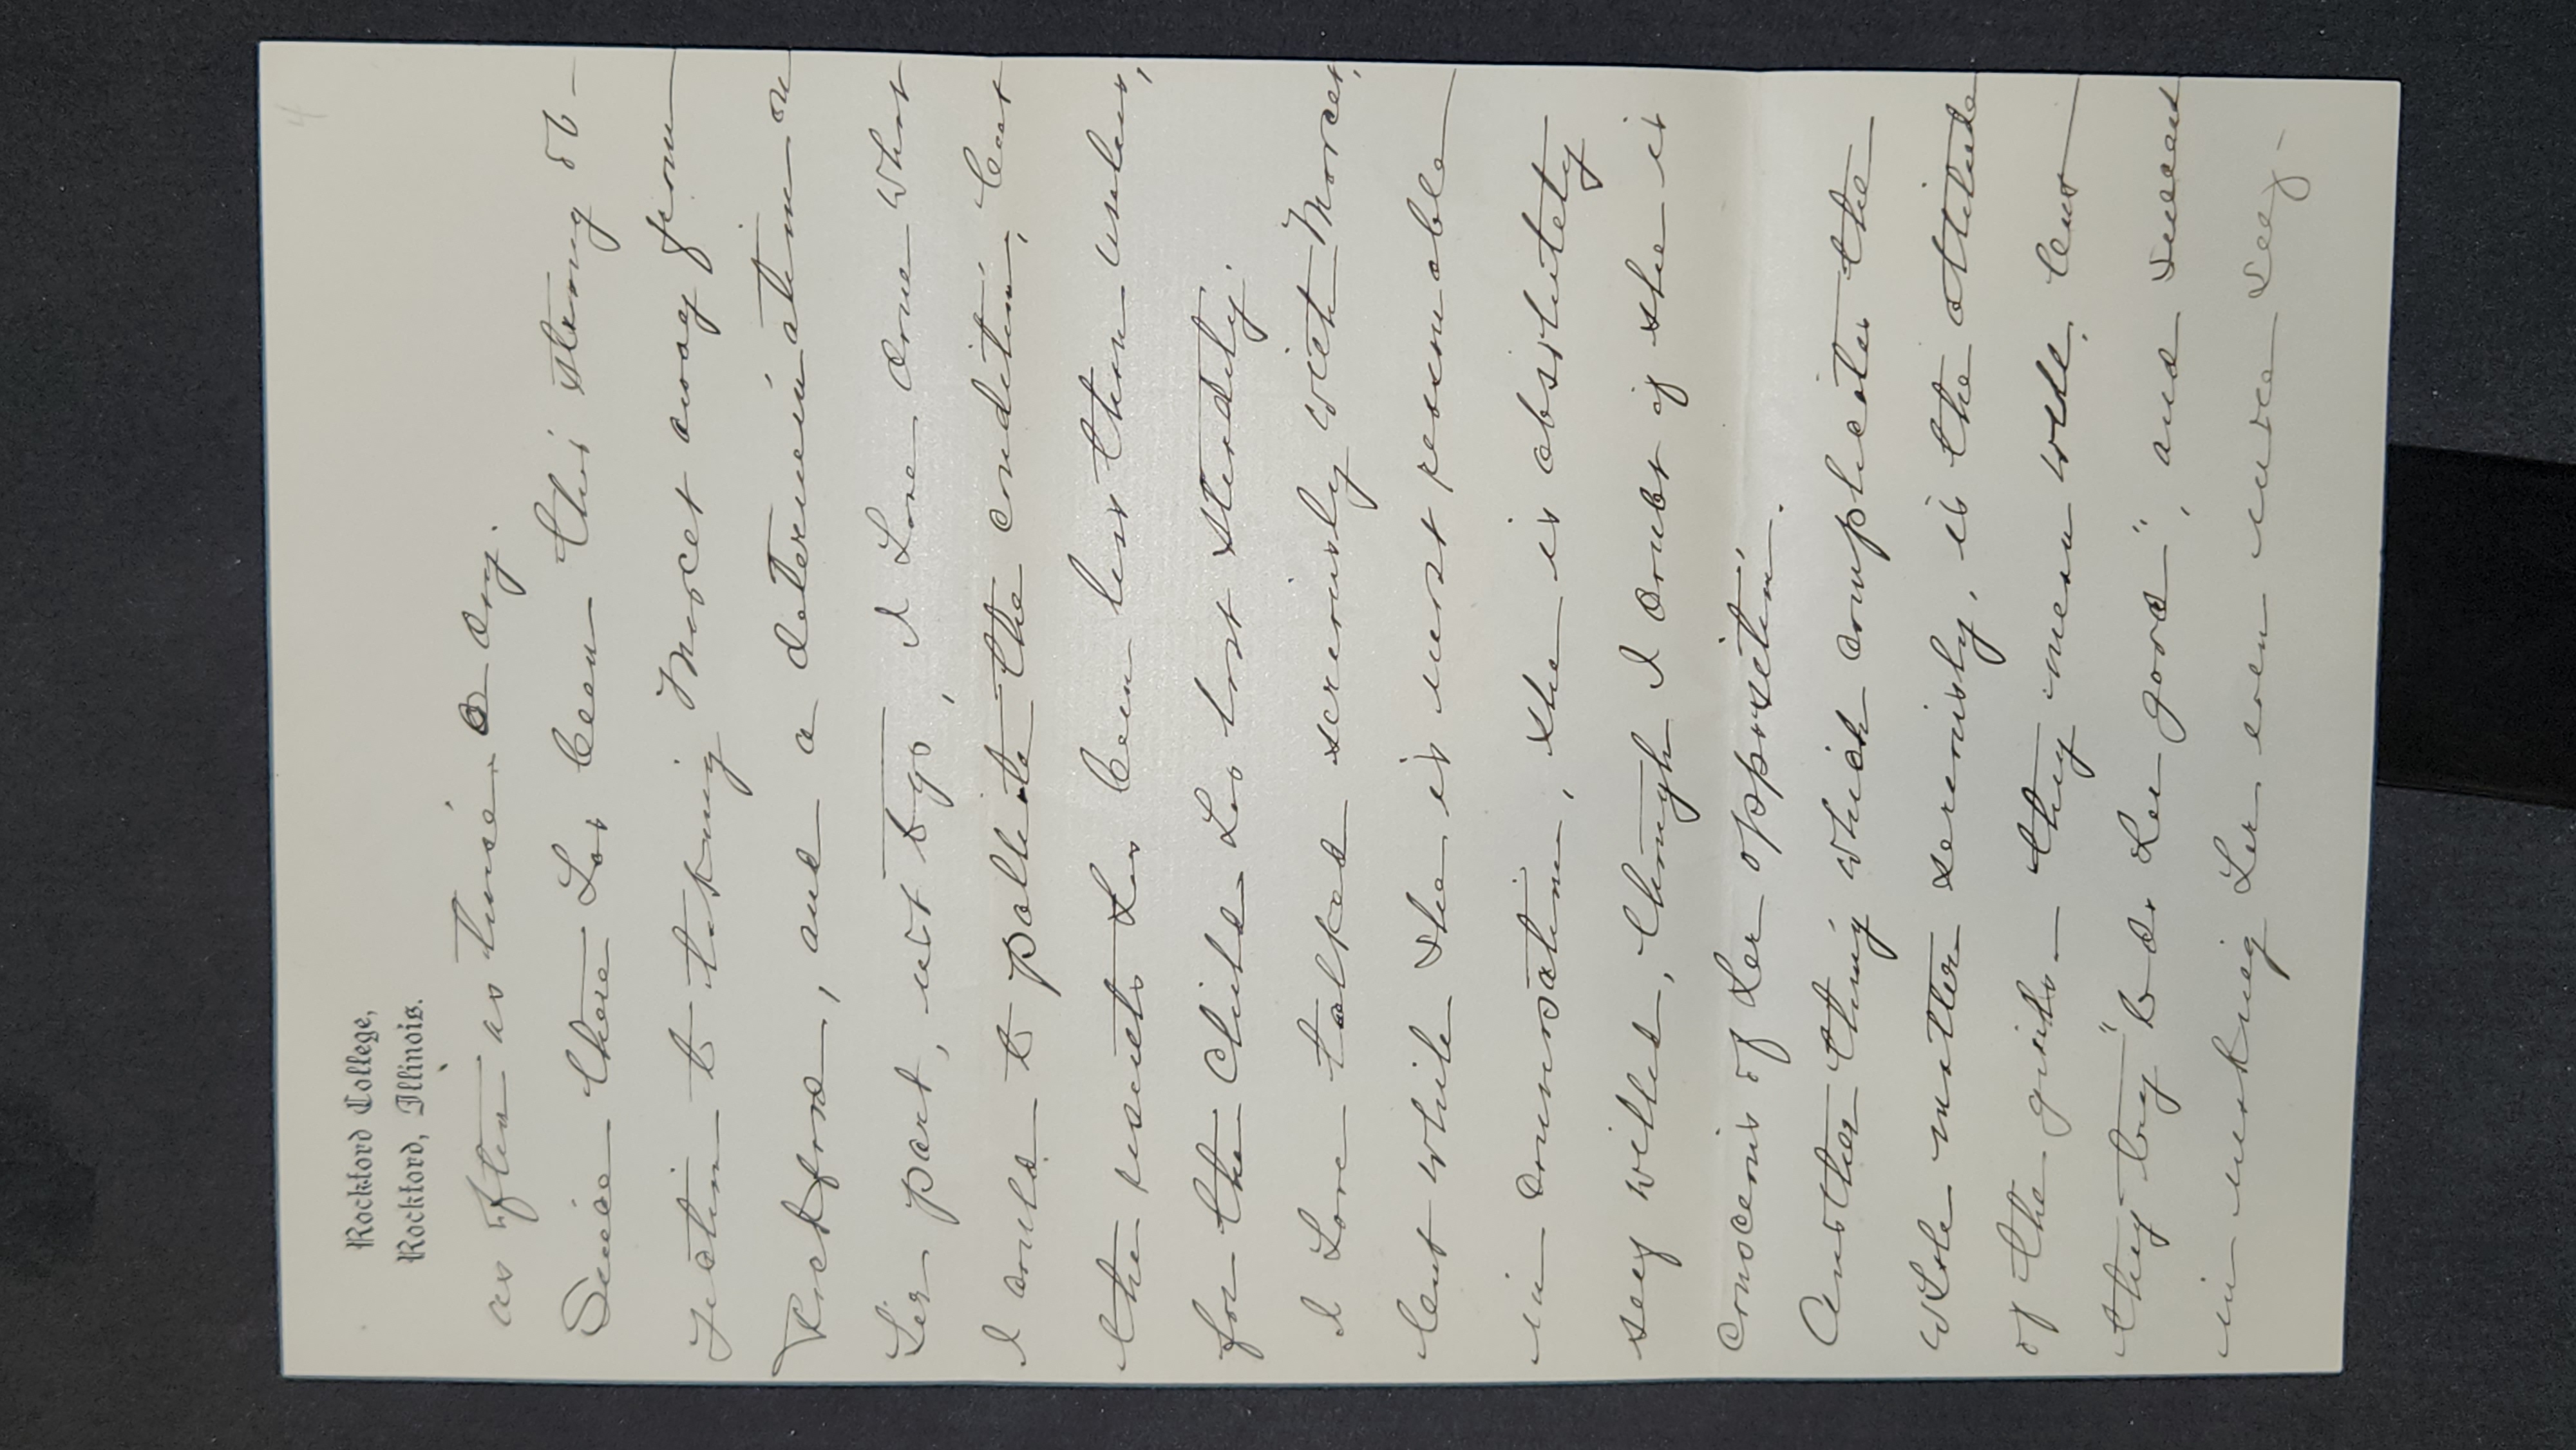 4
Rockford College,
Rockford, Illinois.
as often as twice a day.
Since there has been this strong ob-
jection to taking Marcet away from
Rockford, and a determination on
her part, not to go, I have done what
I could to palliate the condition, but
the results has been less than useless,
for the child has lost steadily.
I have talked seriously with Marcet,
but while she is most reasonable
in conversation, she is absolutely
self willed, though I doubt if she is
conscious of her opposition.
Another thing which complicates the
whole matter seriously, is the attitude
of the girls — they mean well, but
they try "to do her good", and succeed
in making her even more seg-